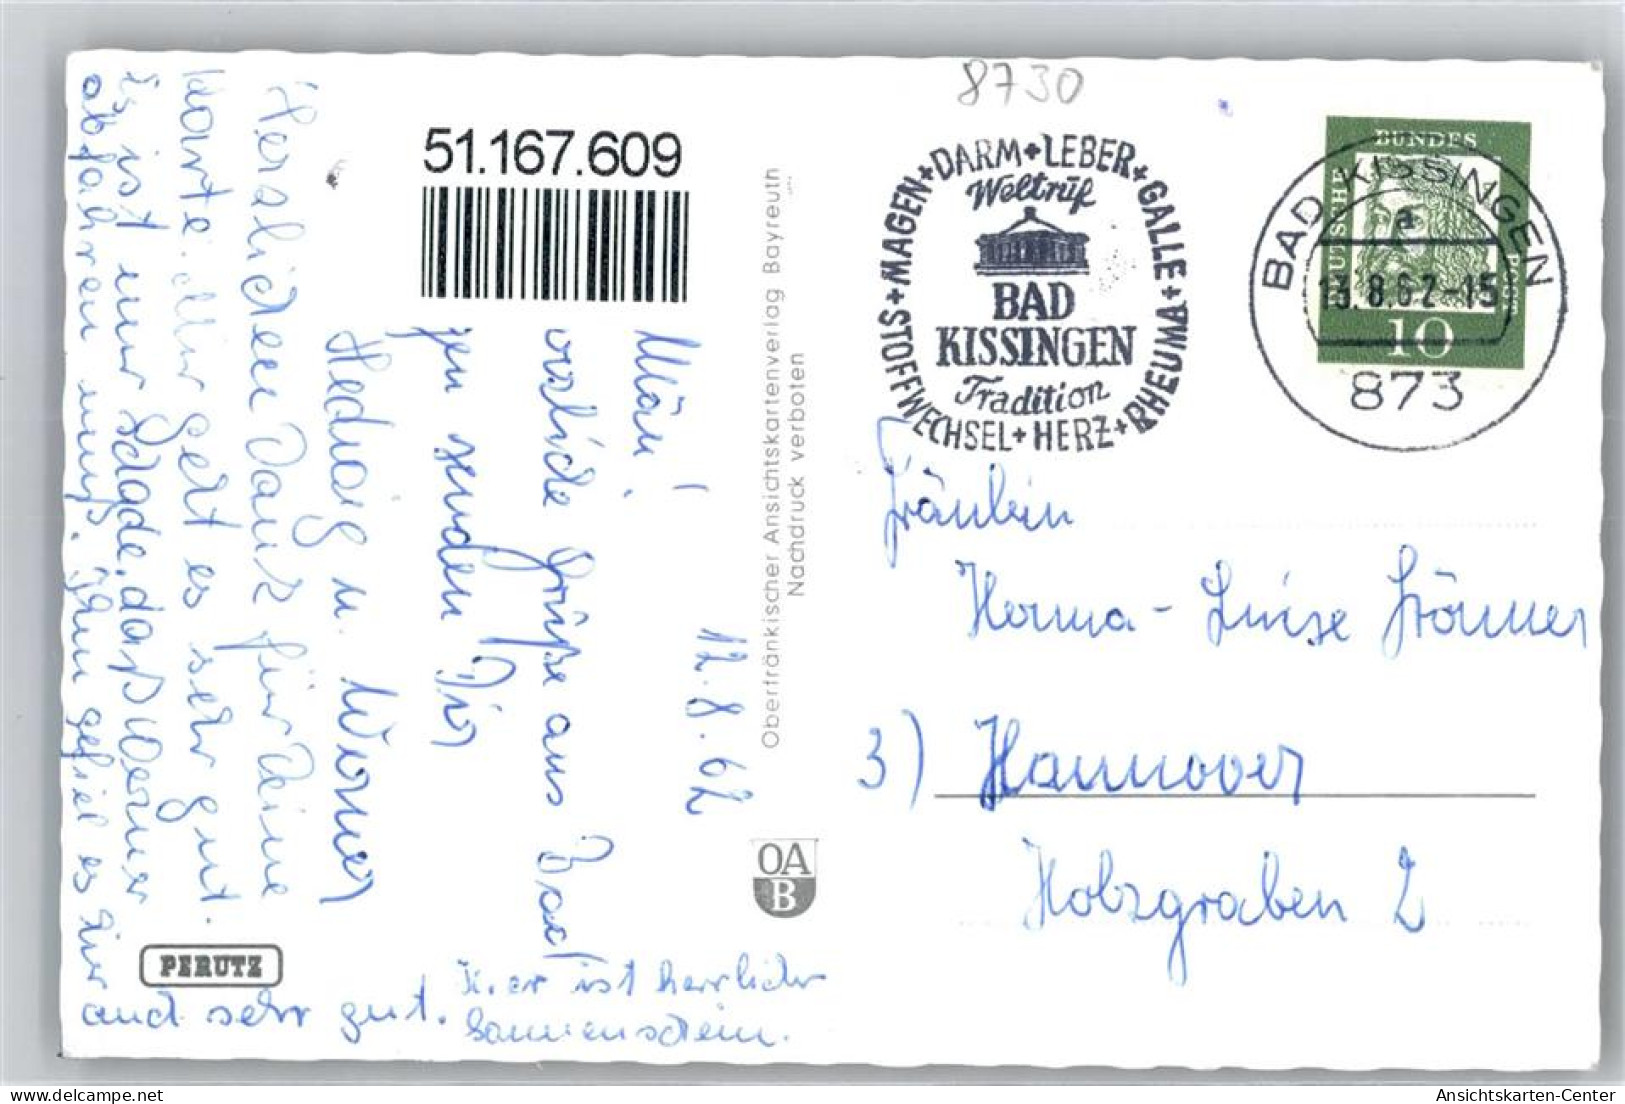 8730
51.167.609
STOFFWECHSEL + MAGEN + DARM + LEBER + GALLE + RHEUMA + HERZ +
Weltruf
BAD
KISSINGEN
Tradition
BUNDES
DEUTSCHE
POST
10
BAD KISSINGEN
a
13.8.62-15
873
Oberfränkischer Ansichtskartenverlag Bayreuth
Nachdruck verboten
OA
B
PERUTZ
12.8.62
Grüße aus Bad
senden Dir
Hedwig u. Werner
Herzlichen Dank für Deine
Karte. Mir geht es sehr gut.
Es ist nur schade, daß Werner
abfahren muß. Ihm gefiel es hier
auch sehr gut.
Hier ist herrlicher
Sonnenschein.
Fräulein
Herma-Luise Krömer
3) Hannover
Holzgraben 2
Ansichtskarten-Center